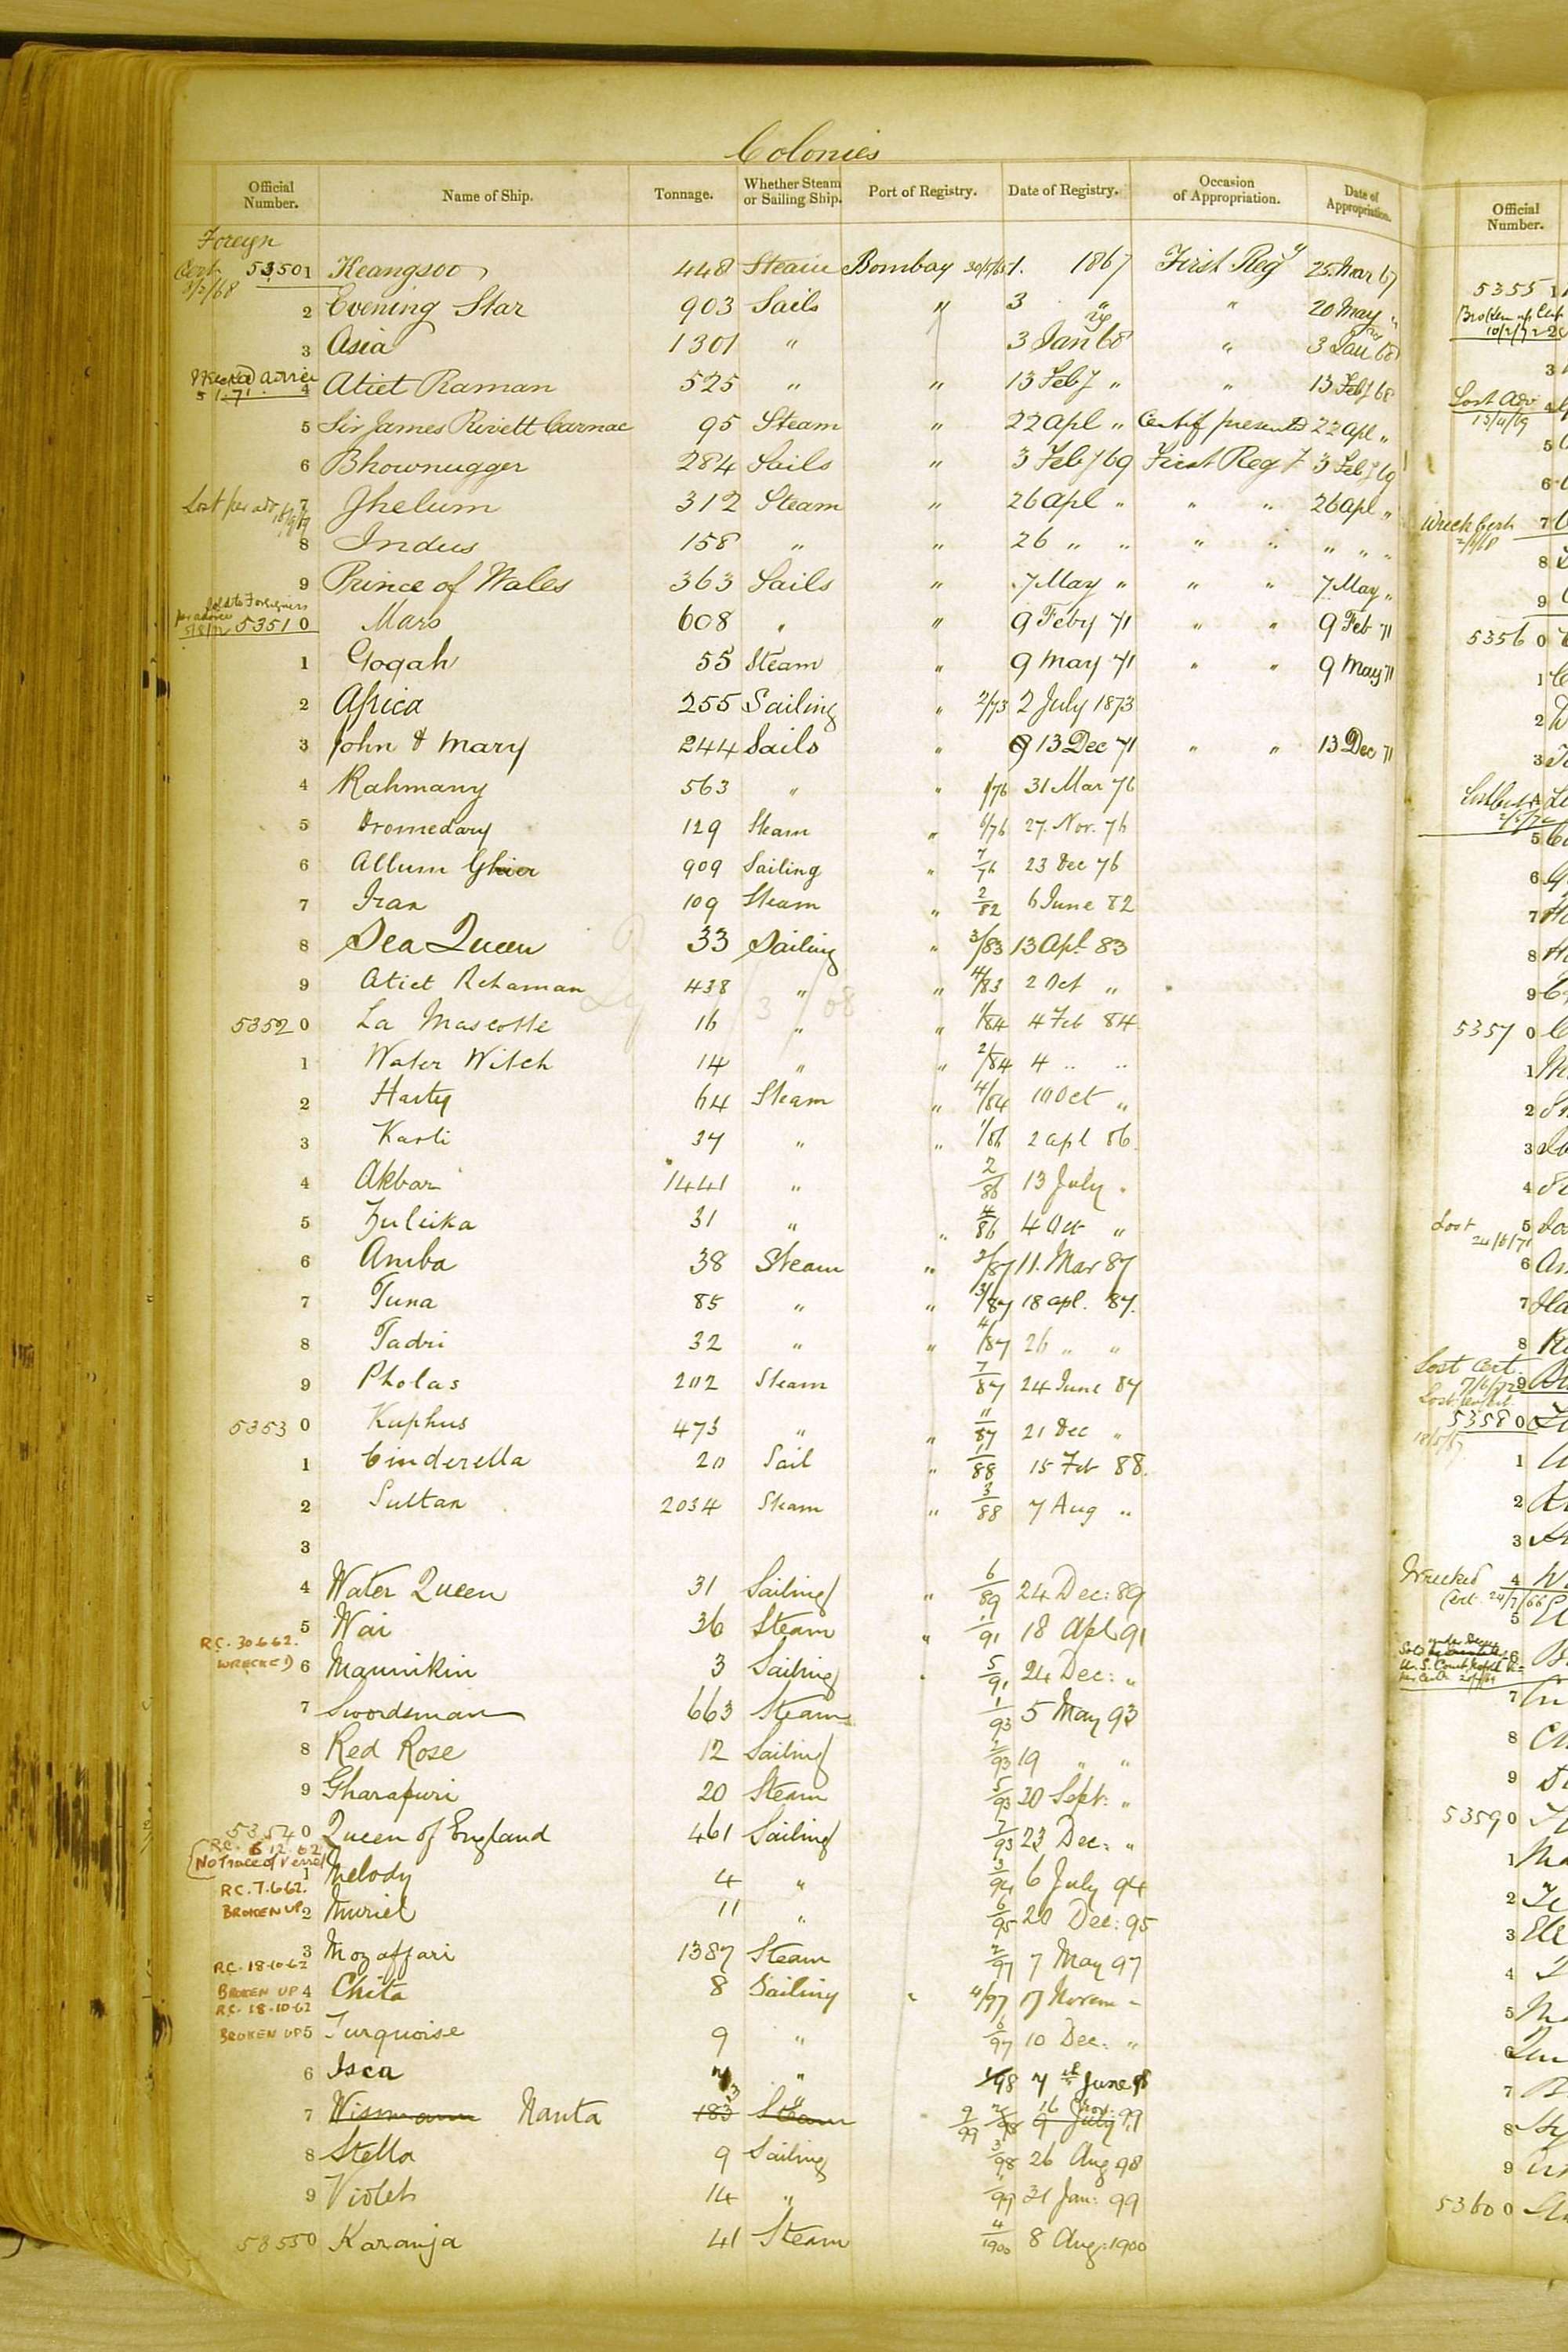 Colonies
Official Number. Name of Ship. Tonnage. Whether Steam or Sailing Ship. Port of Registry. Date of Registry. Occasion of Appropriation. Date of Appropriation.
Foreign
53501 Keangsoo 448 Steam Bombay 1. 1867 First Regy 25 Mar 67
2 Evening Star 903 Sails " 3 " " 20 May "
3 Asia 1301 " 3 Jan 68 " 3 Jan 68
4 Atiet Raman 525 " " 13 Feby " " 13 Feby 68
5 Sir James Rivett Carnac 95 Steam " 22 Apl " Certif presented 22 Apl "
6 Bhownugger 284 Sails " 3 Feby 69 First Regy 3 Feby 69
Lost per adv
7 Jhelum 312 Steam " 26 Apl " " " 26 Apl "
8 Indus 158 " " 26 " " " " " " "
9 Prince of Wales 363 Sails " 7 May " " " 7 May "
Sold to Foreigners
per advice
53510 Mars 608 " " 9 Feby 71 " " 9 Feb 71
1 Gogah 55 Steam " 9 May 71 " " 9 May 71
2 Africa 255 Sailing " 2/73 2 July 1873
3 John & Mary 244 Sails " 13 Dec 71 " " 13 Dec 71
4 Rahmany 563 " " 1/76 31 Mar 76
5 Dromedary 129 Steam " 6/76 27. Nov. 76
6 Allum Ghier 909 Sailing " 7/76 23 Dec 76
7 Iran 109 Steam " 2/82 6 June 82
8 Sea Queen 33 Sailing " 3/83 13 Apl. 83
9 Atiet Rehaman 438 " " 4/83 2 Oct "
53520 La Mascotte 16 " " 1/84 4 Feb 84
1 Water Witch 14 " " 2/84 4 " "
2 Hasty 64 Steam " 4/84 10 Oct "
3 Karli 34 " " 1/86 2 Apl 86.
4 Akbar 1441 " 2/86 13 July "
5 Zuleika 31 " " 4/86 4 Oct "
6 Amba 38 Steam " 2/87 11. Mar 87
7 Tuna 85 " " 3/87 18 Apl. 87.
8 Tadri 32 " " 4/87 26 " "
9 Pholas 202 Steam 7/87 24 June 87
53530 Kuphus 473 " " 11/87 21 Dec "
1 Cinderella 20 Sail " 1/88 15 Feb 88.
2 Sultan 2034 Steam " 3/88 7 Aug "
3
4 Water Queen 31 Sailing " 6/89 24 Dec: 89
5 Wai 36 Steam " 1/91 18 Apl 91
R.C. 30.6.62.
WRECKED
6 Mannikin 3 Sailing " 5/91 24 Dec: "
7 Swordsman 663 Steam 1/93 5 May 93
8 Red Rose 12 Sailing 2/93 19 " "
9 Gharapuri 20 Steam 5/93 20 Sept: "
53540 Queen of England 461 Sailing 7/93 23 Dec: "
R.C. 6 12 62
No Trace of Vessel
1 Melody 4 " 3/94 6 July 94
R.C. 7.6.62.
BROKEN UP
2 Muriel 11 " 6/95 20 Dec: 95
3 Mozaffari 1387 Steam 2/97 7 May 97
R.C. 18-10-62
BROKEN UP
4 Chita 8 Sailing " 4/97 17 Novem "
R.C. 18-10-62
BROKEN UP
5 Turquoise 9 " 6/97 10 Dec: "
6 Isca " 1/98 7th June 98
7 Wismann Nanta 183 13 Steam " 9/99 2/98 9 July 16 Nov: 99
8 Stella 9 Sailing 3/98 26 Aug 98
9 Violet 14 " 1/99 31 Jan: 99
53550 Karanja 41 Steam 4/1900 8 Aug: 1900
Official Number.
5355 1
2
3
Lost Adv
4
5
6
Wreck Cert
7
8
9
5356 0
1
2
3
5
6
7
8
9
5357 0
1
2
3
4
Lost
5
6
7
8
Lost Cert.
9
5358 0
1
2
3
Wrecked
Cert
4
5
7
8
9
5359 0
1
2
3
4
5
7
8
9
5360 0